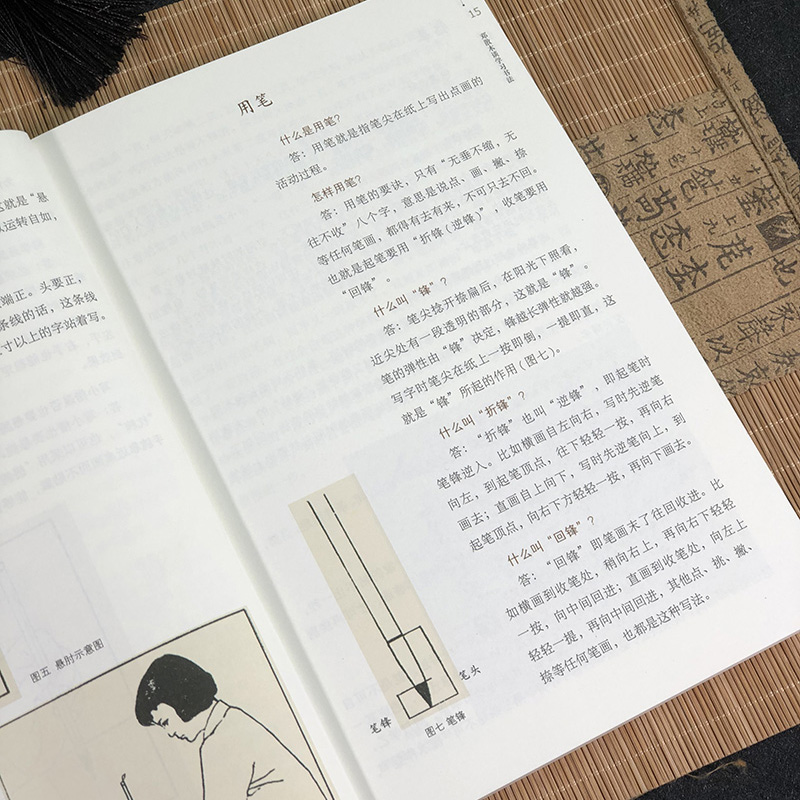 这就是“悬
运转自如,
端正。头要正,
条线的话,这条线
寸以上的字站着写。
图五 悬肘示意图
15
邓散木谈学习书法
用笔
什么是用笔?
答:用笔就是指笔尖在纸上写出点画的
活动过程。
怎样用笔?
答:用笔的要诀,只有“无垂不缩,无
往不收”八个字,意思是说点、画、撇、捺
等任何笔画,都得有去有来,不可只去不回。
也就是起笔要用“折锋(逆锋)”,收笔要用
“回锋”。
什么叫“锋”?
答:笔尖捻开捺扁后,在阳光下照看,
近尖处有一段透明的部分,这就是“锋”。
笔的弹性由“锋”决定,锋越长弹性就越强。
写字时笔尖在纸上一按即倒,一提即直,这
就是“锋”所起的作用(图七)。
什么叫“折锋”?
答:“折锋”也叫“逆锋”,即起笔时
笔锋逆入。比如横画自左向右,写时先逆笔
向左,到起笔顶点,往下轻轻一按,再向右
画去;直画自上向下,写时先逆笔向上,到
起笔顶点,向右下方轻轻一按,再向下画去。
什么叫“回锋”?
答:“回锋”即笔画末了往回收进。比
如横画到收笔处,稍向右上,再向右下轻轻
一按,向中间回进;直画到收笔处,向左上
轻轻一提,再向中间回进,其他点、挑、撇、
捺等任何笔画,也都是这种写法。
笔头
笔锋
图七 笔锋